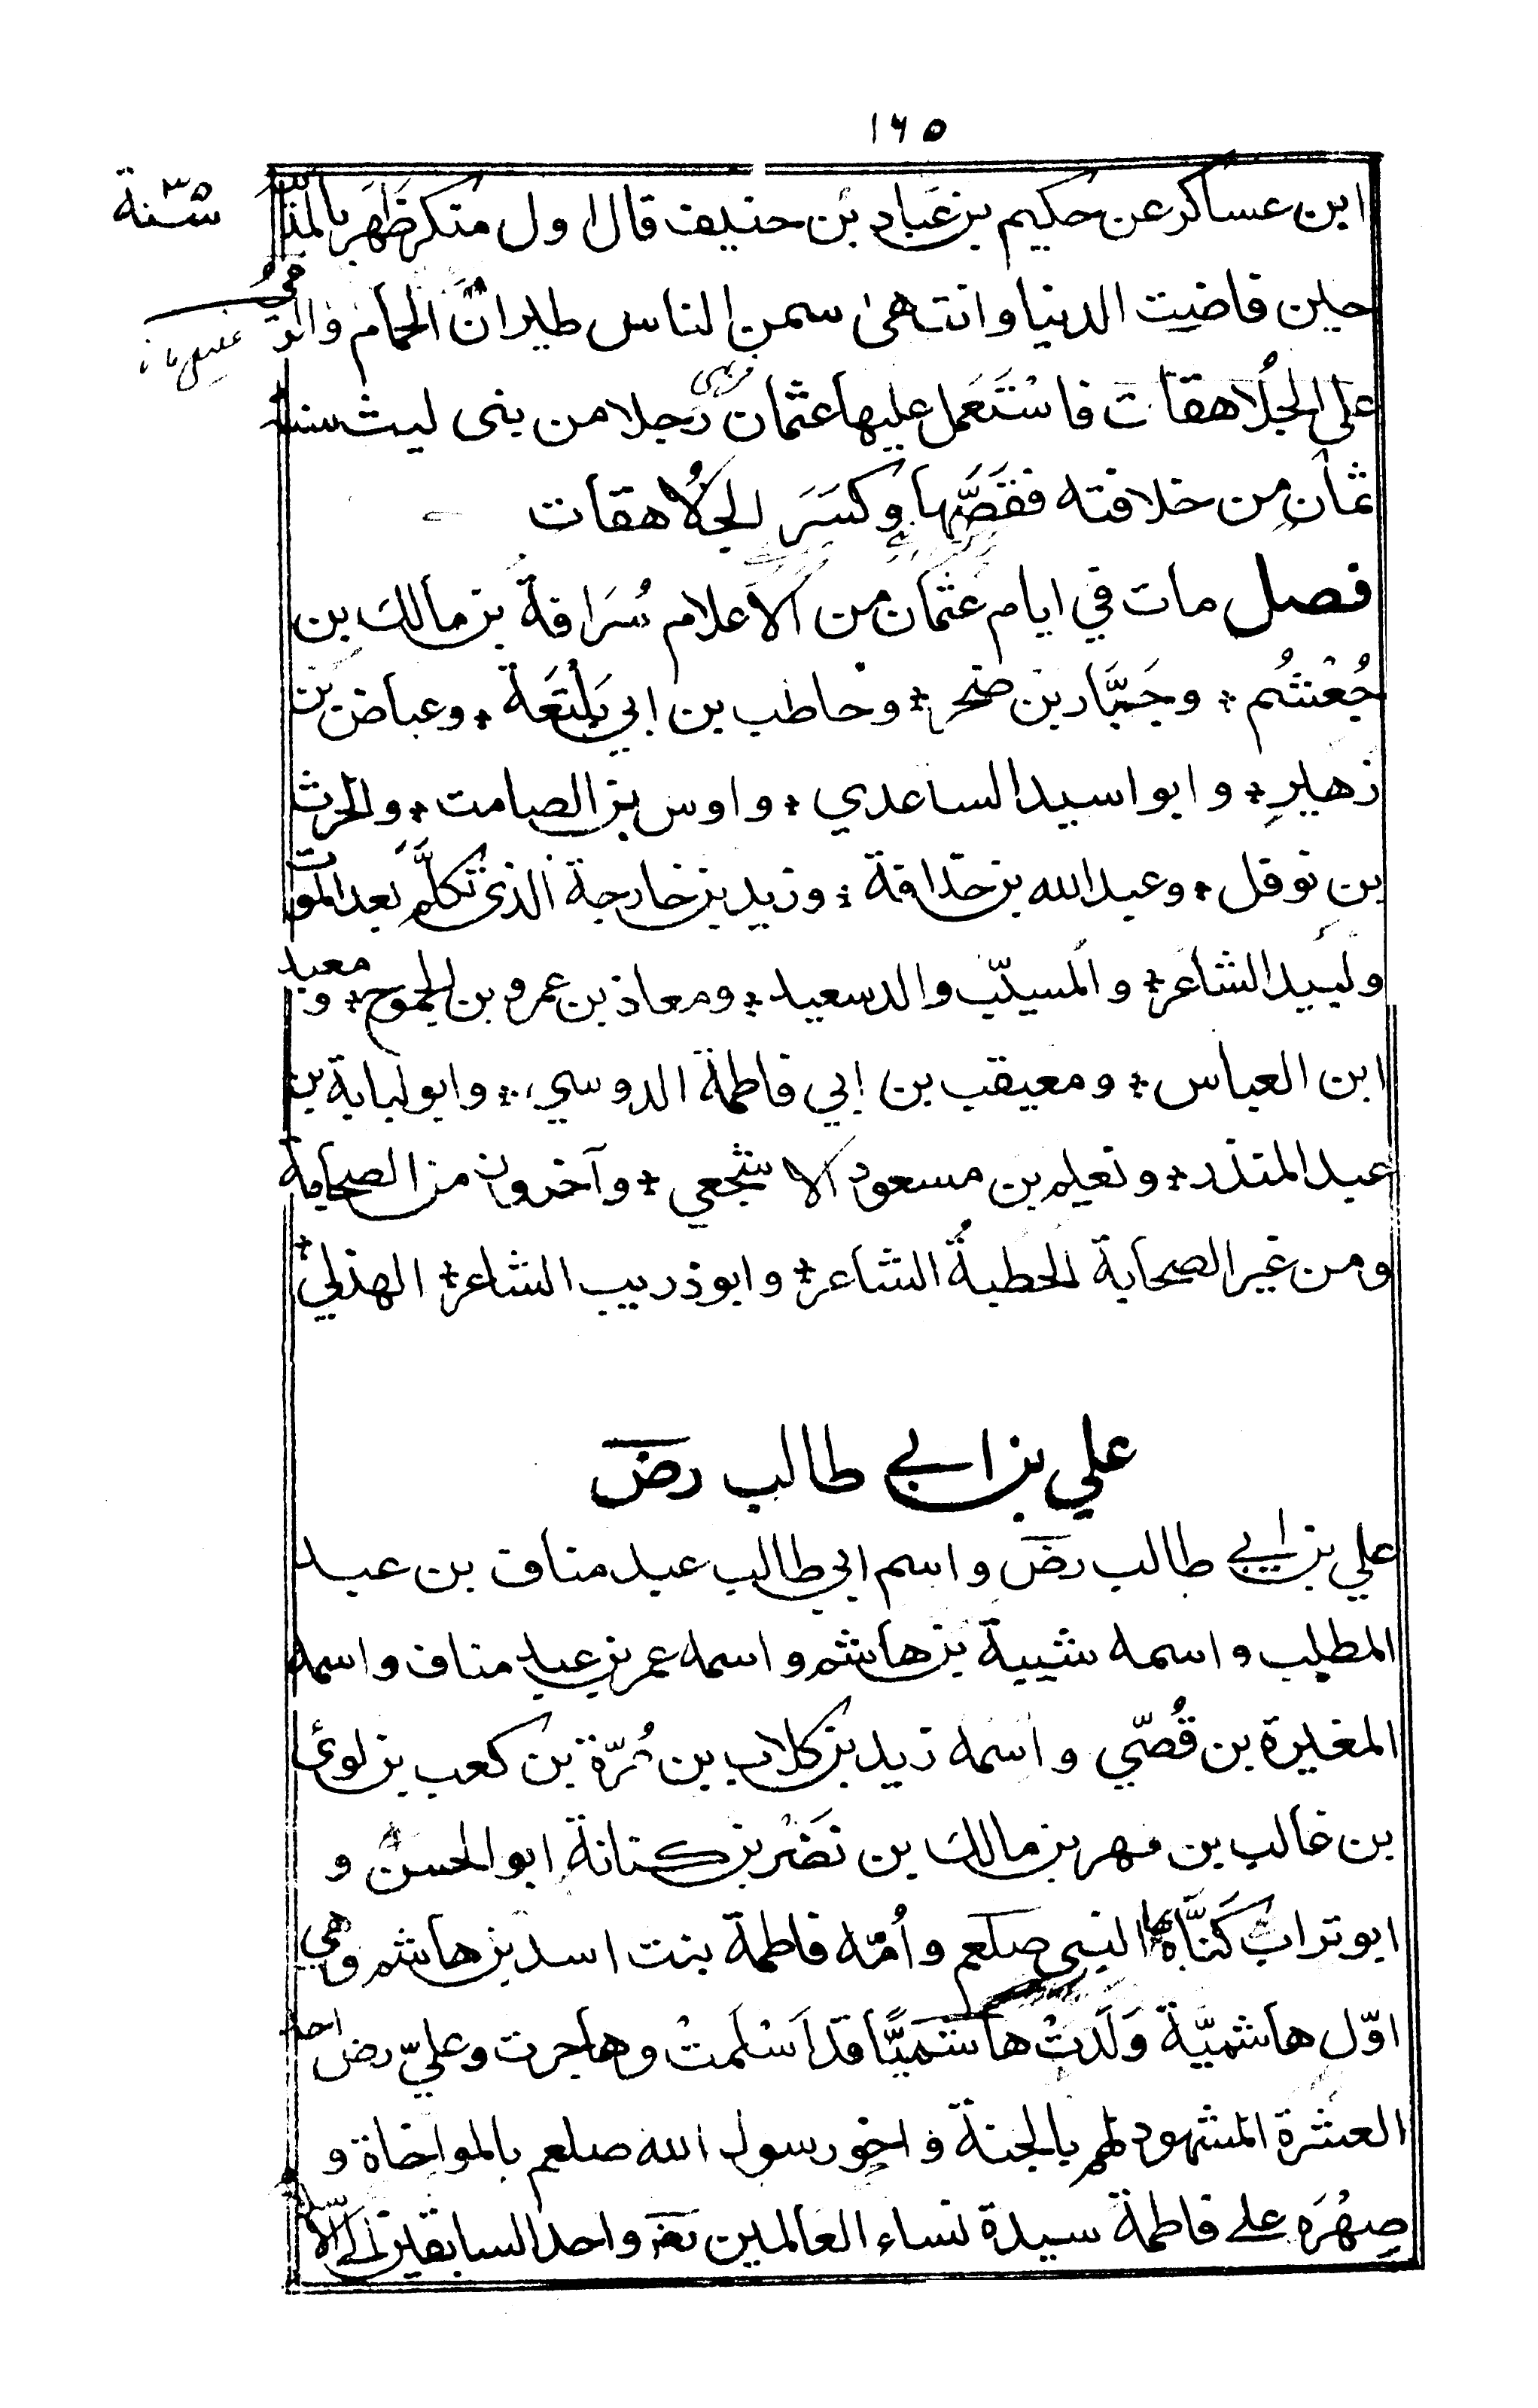 ١٦٥
سنة ٣٥
ابن عساكر عن حكيم بن عباد بن حنيف قال اول منكر ظَهَر بالمدينة
حين فاضت الدنيا وانتهىٰ سمن الناس طيران الحمام والرمي
على الجُلاهقات فاسْتَعمل عليها عثمان رجلا من بنى ليث سنة
ثمانٍ من خلافته فقصَّها وكسَرَ الجُلاهقات
فصل مات في ايام عثمان من الاعلام سُرَاقة بن مالك بن
جُعْشُم * وجَبَّار بن صخر * وحاطب بن ابي بَلْتَعَة * وعياض بن
زهير * وابو اسيد الساعدي * واوس بن الصامت * والحرث
بن نوفل * وعبد الله بن حذافة * وزيد بن خارجة الذى تكلَّم بعد الموت
ولبيد الشاعر * والمسيّب والد سعيد * ومعاذ بن عمرو بن الجموح * ومعبد
ابن العباس * ومعيقب بن ابي فاطمة الدوسي * وابو لبابة بن
عبد المنذر * ونعيم بن مسعود الاشجعي * وآخرون من الصحابة
ومن غير الصحابة الحطيةُ الشاعر * وابو ذريب الشاعر * الهذلي *
علي بن ابي طالب رض
علي بن ابي طالب رض واسم ابي طالب عبد مناف بن عبد
المطلب واسمه شيبة بن هاشم واسمه عمر بن عبد مناف واسمه
المغيرة بن قُصّي واسمه زيد بن كلاب بن مُرّة بن كعب بن لوئ
بن غالب بن فهر بن مالك بن نَضْر بن كنانة ابو الحسن و
ابو تراب كَنَّاه بها النبي صلعم واُمّه فاطمة بنت اسد بن هاشم وهي
اوّل هاشميّة وَلَدتْ هاشميًّا قد اَسْلمتْ وهاجرت وعليّ رض احد
العشرة المشهود لهم بالجنة واخو رسول الله صلعم بالمواخاة و
صِهْرَه على فاطمة سيدة نساء العالمين رض واحد السابقين الى الاسلام